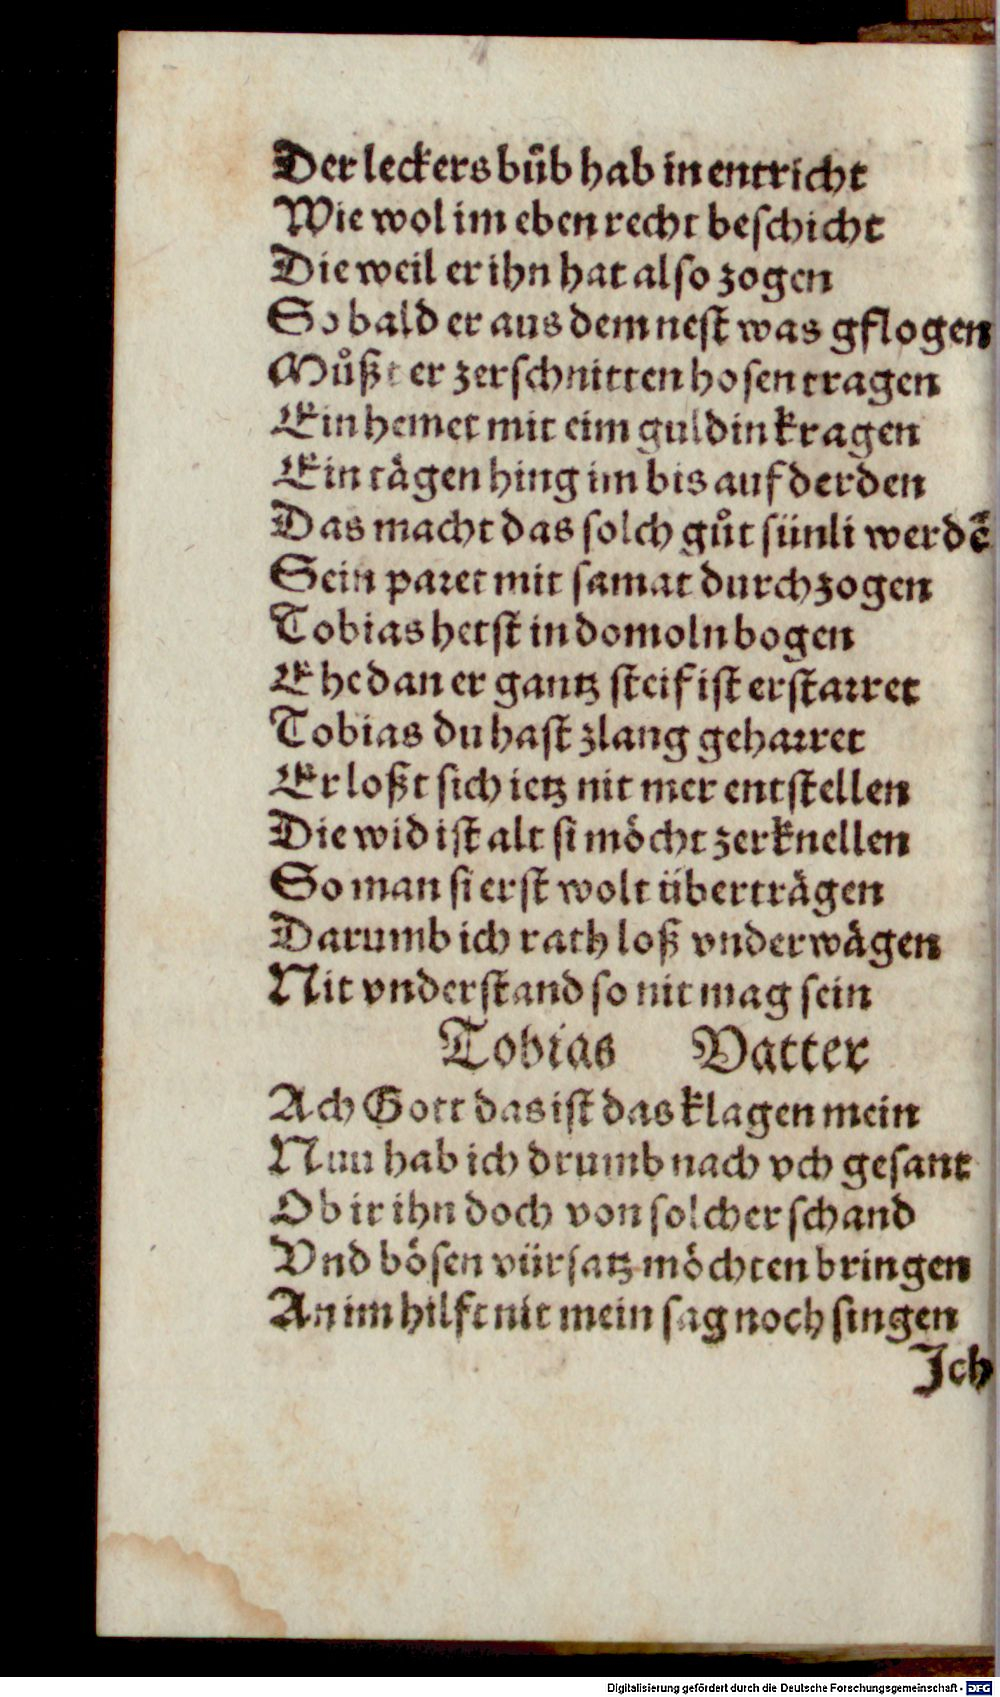 Der leckers bůb hab in entricht
Wie wol im eben recht beschicht
Die weil er ihn hat also zogen
So bald er aus dem nest was gflogen
Můßt er zerschnitten hosen tragen
Ein hemet mit eim guldin kragen
Ein tägen hing im bis auf derden
Das macht das solch gůt sünli werdẽ
Sein paret mit samat durchzogen
Tobias hetst in domoln bogen
Ehe dan er gantz steif ist erstarret
Tobias du hast zlang geharret
Er loßt sich ietz nit mer entstellen
Die wid ist alt si möcht zerknellen
So man si erst wolt überträgen
Darumb ich rath loß vnderwägen
Nit vnderstand so nit mag sein
Tobias Vatter
Ach Gott das ist das klagen mein
Nun hab ich drumb nach vch gesant
Ob ir ihn doch von solcher schand
Vnd bösen vürsatz möchten bringen
An im hilft nit mein sag noch singen
Ich
Digitalisierung gefördert durch die Deutsche Forschungsgemeinschaft - DFG